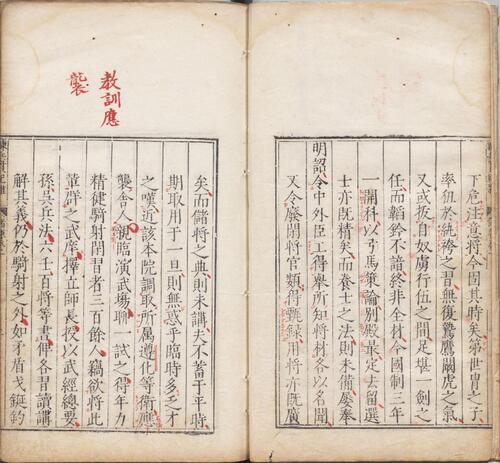 下危注意將今固其時矣第世冑之子
率狃於紈袴之習無復鷙鷹闞虎之氣
又或拔自奴虜行伍之間足堪一劍之
任而韜鈐不諳終非全材今國制三年
一開科以弓馬策論別殿最定去留選
士亦既精矣而養士之法則未備屢奉
明詔令中外臣工得舉所知將材各以名聞
又令廢閒將官類得甄錄用將亦既廣
教訓應
襲
矣而儲將之典則未講夫不蓄于平時
期取用于一旦則無惑乎臨時多乏才
之嘆近該本院調取所属遵化等衛應
襲舍人親臨演武塲聊一試之得年力
精徤騎射閑習者三百餘人竊欲將此
輩群之武庠擇立師長授以武經總要
孫吳兵法六壬百將等書俾各習讀講
解其義仍於騎射之外如矛盾戈鋋鈎